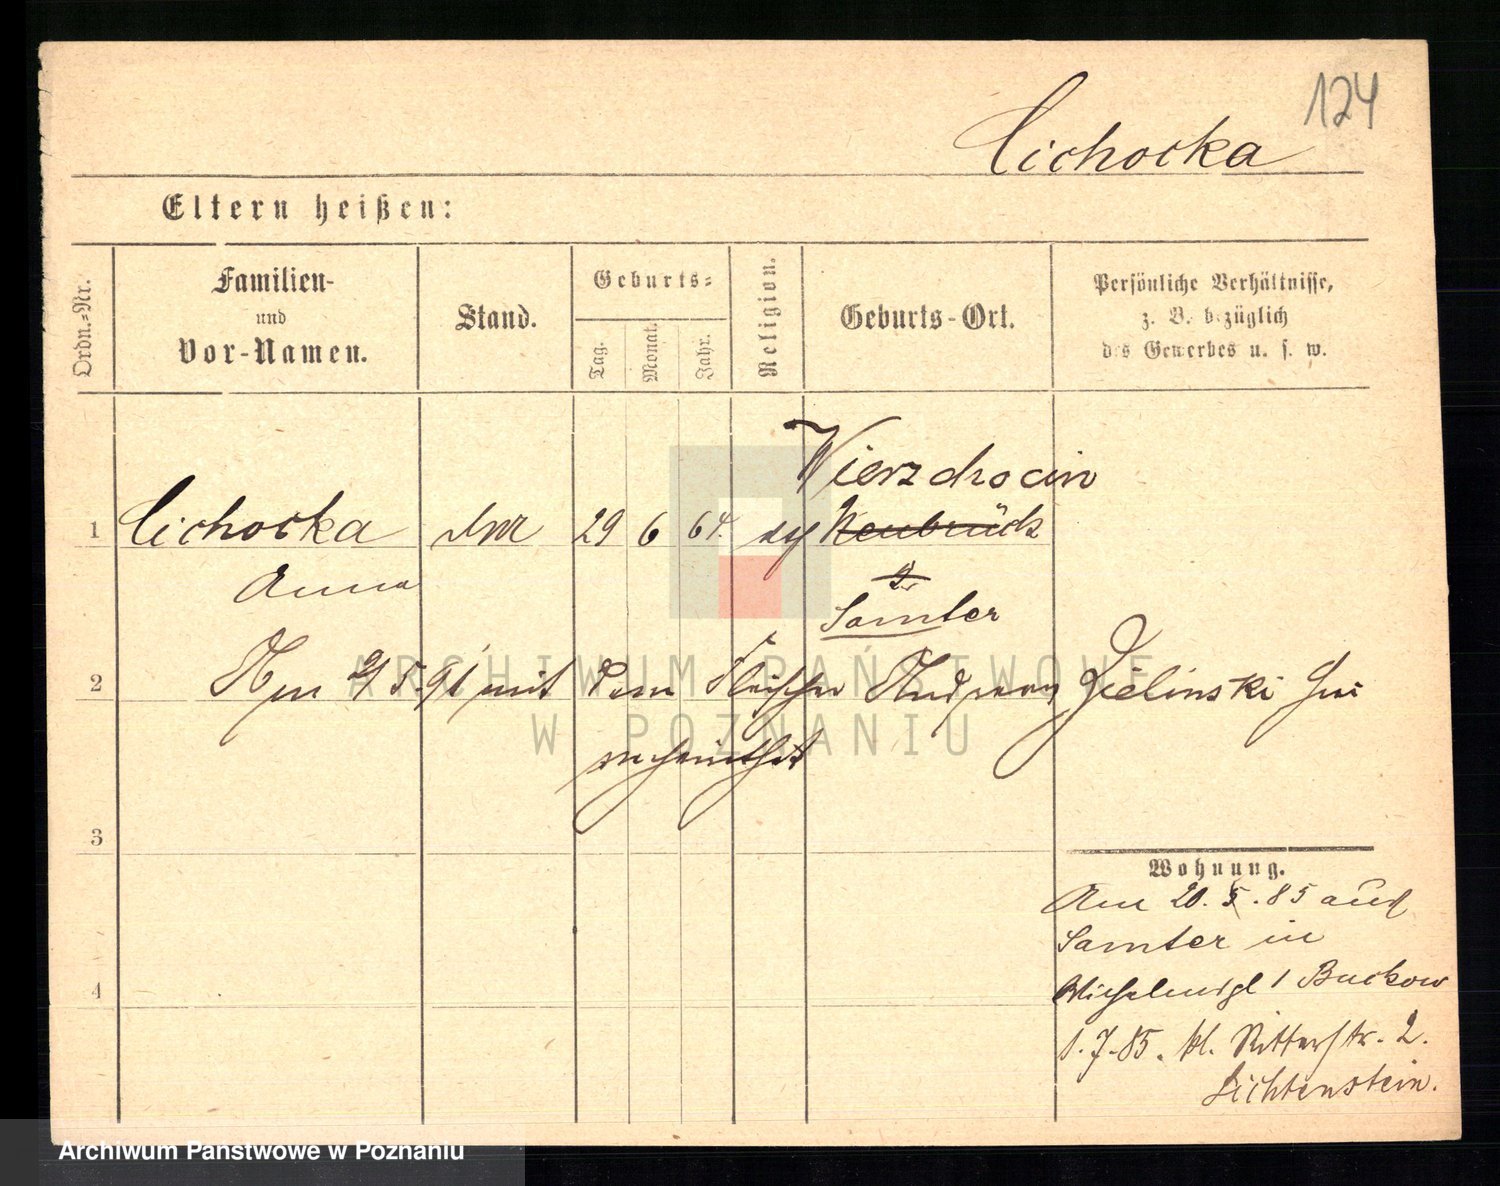 124
Cichocka
Eltern heißen:
Ordn.-Nr.
Familien-
und
Vor-Namen.
Stand.
Geburts-
Tag.
Monat.
Jahr.
Religion.
Geburts-Ort.
Persönliche Verhältnisse,
z. B. bezüglich
des Gewerbes u. s. w.
Wierzchocin
1 Cichocka 29 6 64. Neubrück
Anna
Samter
2 5. 91 mit dem Fleischer Andreas Zielinski hier
verheirathet
3
Wohnung.
Am 20. 5. 85 aus
Samter in
Wilhelmspl 1 Buckow
4
1. 7. 85. kl. Ritterstr. 2.
Lichtenstein.
ARCHIWUM PAŃSTWOWE
W POZNANIU
Archiwum Państwowe w Poznaniu